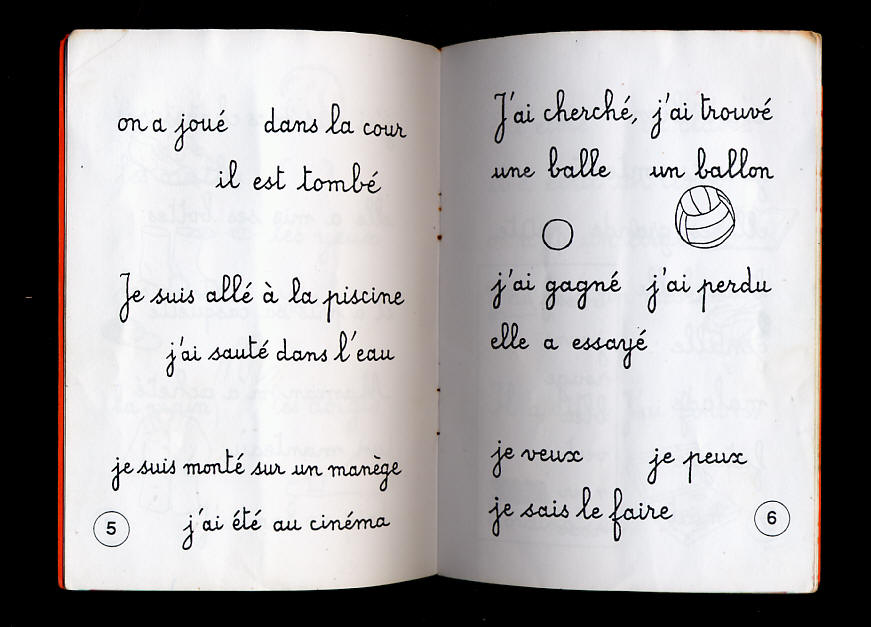 on a joué dans la cour
il est tombé
Je suis allé à la piscine
j'ai sauté dans l'eau
je suis monté sur un manège
j'ai été au cinéma
5
J'ai cherché, j'ai trouvé
une balle un ballon
j'ai gagné j'ai perdu
elle a essayé
je veux je peux
je sais le faire
6